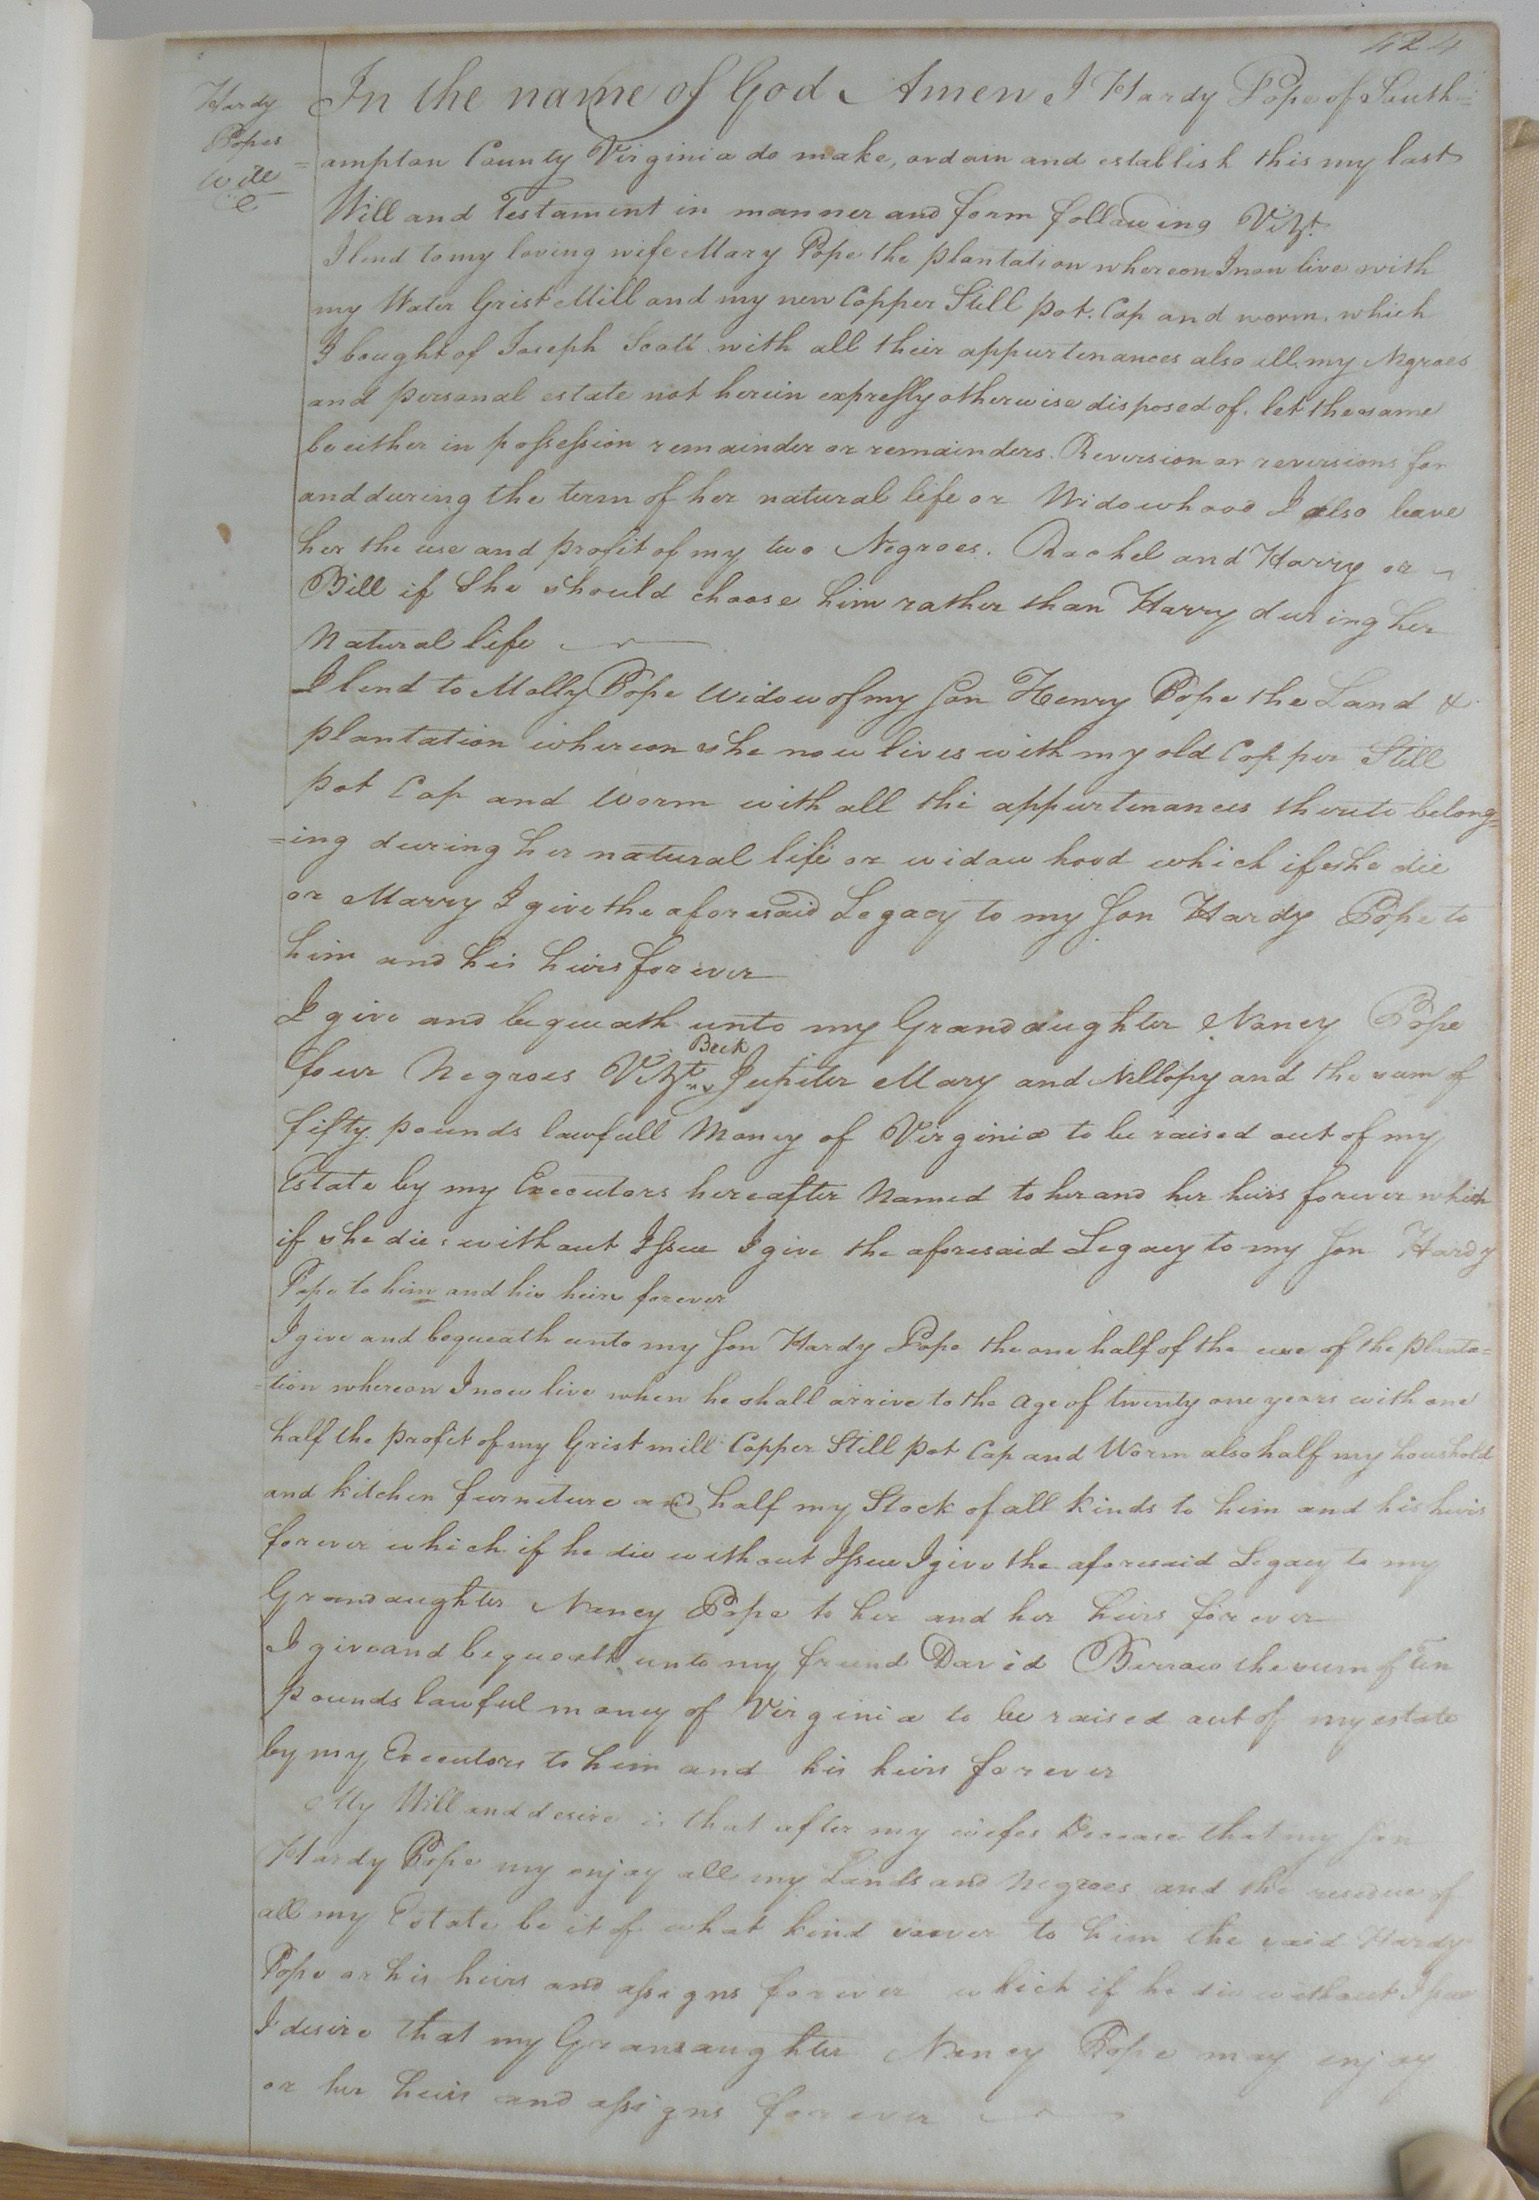 424
Hardy
Popes
Will
In the name of God Amen I Hardy Pope of South=
=ampton County Virginia do make, ordain and establish this my last
Will and Testament in manner and form following Vizt.
I lend to my loving wife Mary Pope the plantation whereon I now live with
my Water Grist Mill and my new Copper Still pot. Cap and worm. which
I bought of Joseph Scott with all their appurtenances also all my Negroes
and personal estate not herein expressly otherwise disposed of. let the same
be either in possession remainder or remainders. Reversion or reversions for
and during the term of her natural life or Widowhood I also leave
her the use and profit of my two Negroes. Rachel and Harry or
Bill if She should choose him rather than Harry during her
Natural life
I lend to Molly Pope Widow of my Son Henry Pope the Land &
plantation whereon she now lives with my old Copper Still
pot Cap and Worm with all the appurtenances thereto belong=
=ing during her natural life or widow hood which if she die
or Marry I give the aforesaid Legacy to my Son Hardy Pope to
him and his heirs forever
I give and bequeath unto my Grandaughter Nancy Pope
Beck
four Negroes Vizt Jupiter Mary and Nillopy and the sum of
fifty pounds lawfull Money of Virginia to be raised out of my
Estate by my Executors hereafter Named to her and her heirs forever which
if she die: without Issue I give the aforesaid Legacy to my Son Hardy
Pope to him and his heirs forever
I give and bequeath unto my Son Hardy Pope the one half of the use of the planta=
=tion whereon I now live when he shall arrive to the age of twenty one years with one
half the profit of my Grist mill Copper Still pot Cap and Worm also half my houshold
and kitchen furniture and half my Stock of all kinds to him and his heirs
forever which if he die without Issue I give the aforesaid Legacy to my
Grandaughter Nancy Pope to her and her heirs forever
I give and bequeath unto my friend David Barrow the sum of Ten
pounds lawful money of Virginia to be raised out of my estate
by my Executors to him and his heirs forever
My Will and desire is that after my wifes Decease that my Son
Hardy Pope my enjoy all my Lands and Negroes and the residue of
all my Estate be it of what kind soever to him the said Hardy
Pope or his heirs and assigns forever which if he die without Issue
I desire that my Grandaughter Nancy Pope may enjoy
or her heirs and assigns forever